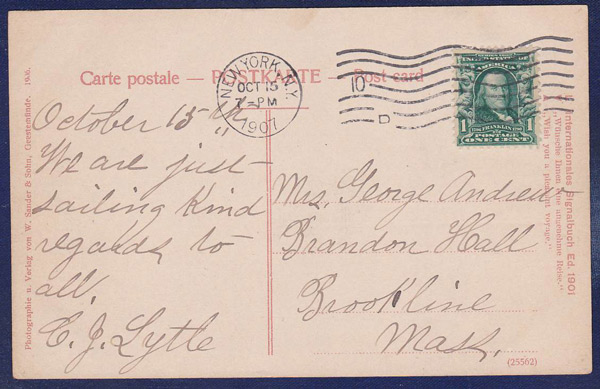 Carte postale — POSTKARTE — Post card
NEW YORK, N.Y.
OCT 15
7-PM
1907
10
D
OF
AMERICA
1
FRANKLIN
ONE CENT
October 15th
We are just
sailing Kind
regards to
all,
C. J. Lytle
Mrs. George Andrew
Brandon Hall
Brookline
Mass.
Photographie u. Verlag von W. Sander & Sohn, Geestemünde. 1906.
Internationales Signalbuch Ed. 1901
„Wünsche Ihnen eine angenehme Reise."
„Wish you a pleasant voyage."
(25562)